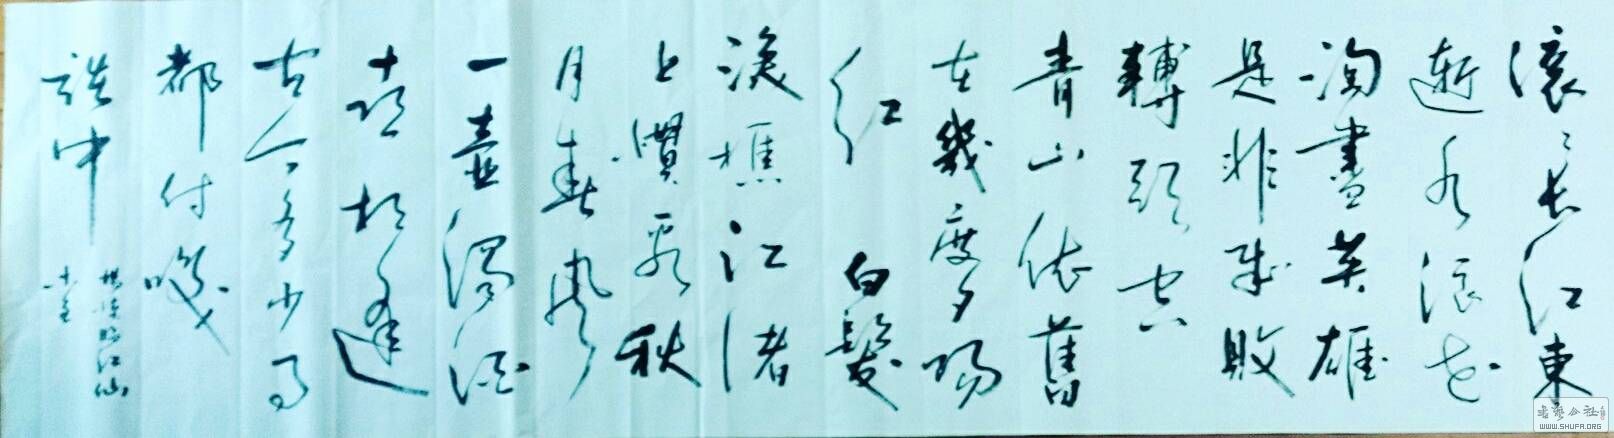 滚〻長江東
逝水浪花
淘盡英雄
是非成敗
轉頭空
青山依舊
在幾度夕陽
紅 白髮
漁樵江渚
上慣看秋
月春風
一壺濁酒
喜相逢
古今多少事
都付咲
談中
楊慎臨江仙
书艺公社
WWW.SHUFA.ORG